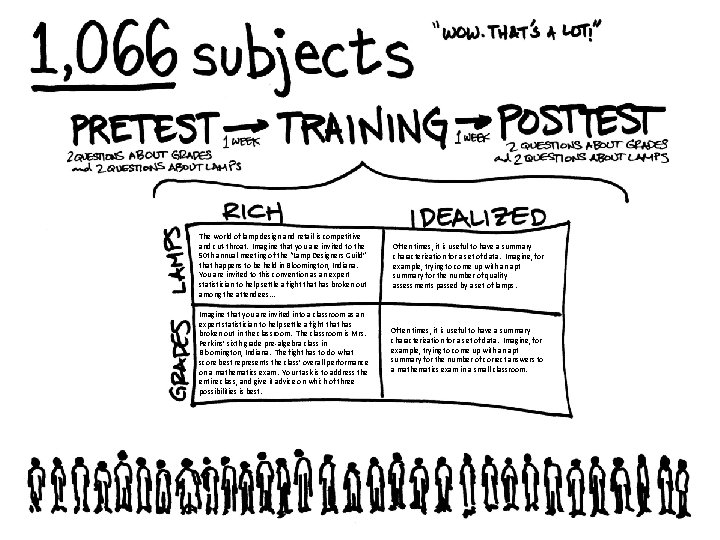 1,066 subjects
"WOW. THAT'S A LOT!"
PRETEST → TRAINING → POSTTEST
1 WEEK
1 WEEK
2 QUESTIONS ABOUT GRADES
and 2 QUESTIONS ABOUT LAMPS
2 QUESTIONS ABOUT GRADES
and 2 QUESTIONS ABOUT LAMPS
RICH
IDEALIZED
LAMPS
The world of lamp design and retail is competitive
and cut throat. Imagine that you are invited to the
50th annual meeting of the "Lamp Designers Guild"
that happens to be held in Bloomington, Indiana.
You are invited to this convention as an expert
statistician to help settle a fight that has broken out
among the attendees...
Often times, it is useful to have a summary
characterization for a set of data. Imagine, for
example, trying to come up with an apt
summary for the number of quality
assessments passed by a set of lamps.
GRADES
Imagine that you are invited into a classroom as an
expert statistician to help settle a fight that has
broken out in the classroom. The classroom is Mrs.
Perkins' sixth grade pre-algebra class in
Bloomington, Indiana. The fight has to do what
score best represents the class' overall performance
on a mathematics exam. Your task is to address the
entire class, and give it advice on which of three
possibilities is best.
Often times, it is useful to have a summary
characterization for a set of data. Imagine, for
example, trying to come up with an apt
summary for the number of correct answers to
a mathematics exam in a small classroom.